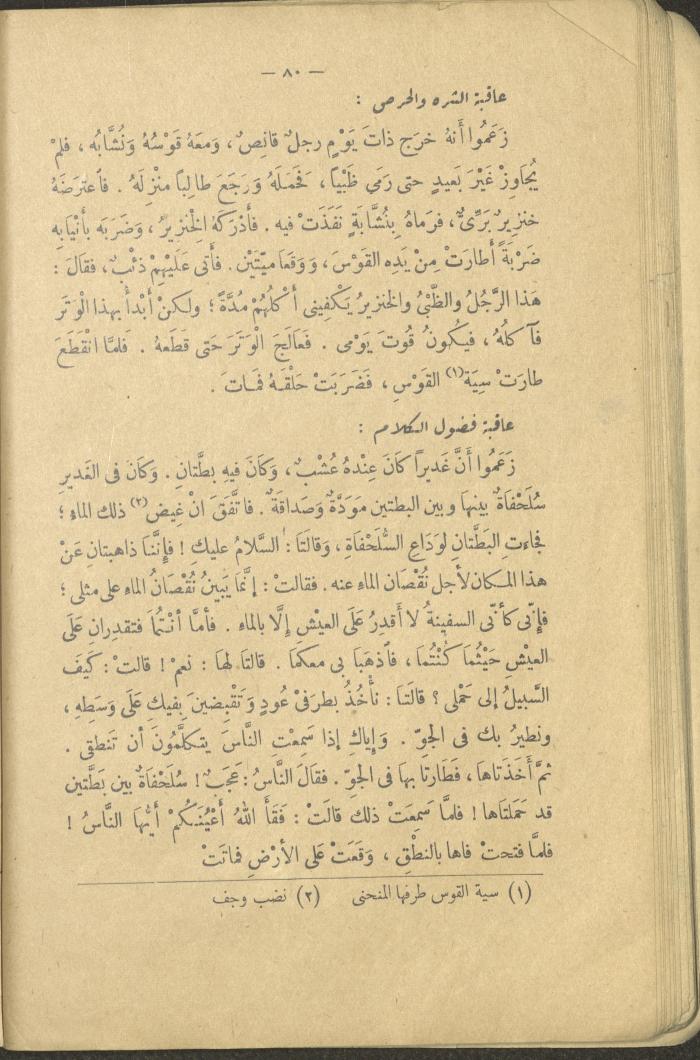 — ٨٠ —
عاقبة الشره والحرص :
زَعَمُوا أَنهُ خرَج ذاتَ يَوْمٍ رجلٌ قانِصٌ، وَمعَهُ قَوْسُهُ وَنُشَّابُه ، فلمْ
يُجَاوِزْ غَيْرَ بَعيدٍ حتى رَمَي ظَبْيًا، فَحَمَلَهُ وَرَجَعَ طالِبًا منْزِلَهُ . فاعْترَضَهُ
خنزيرٌ بَرِّىٌّ، فرَماهُ بِنُشَّابَةٍ نَفَذَتْ فيه . فأدْرَكَهُ الْخِنزيرُ ، وَضَرَبَه بأَنْيَابِه
ضَرْبَةً أَطارَتْ مِنْ يَدِه القَوْسَ، وَوَقَعَا مَيّتَيْنِ. فأَتى عَلَيْهِمْ ذئْبٌ، فقالَ :
هٰذا الرَّجُلُ والظَّبْىُ والخنزيرُ يَكْفِينى أَكْلُهُمْ مُدَّةً ؛ ولكنْ أَبْدأُ بهذا الْوَتَر
فآكلُهُ ، فيكُونُ قُوتَ يَوْمى . فَعَالَجَ الْوَتَرَ حَتى قطَعهُ . فلمَّا انْقَطَعَ
طارَتْ سِيَة(١) القَوْسِ ، فَضَرَبَتْ حَلْقَهُ فَمَاتَ .
عاقبة فضول الكلام :
زَعَمُوا أَنَّ غَديراً كانَ عِنْدهُ عُشْبٌ، وَكانَ فيهِ بطَّتانِ . وَكانَ فى الغَديرِ
سُلَحْفَاةٌ بينها وبين البطتين مَوَدَّةٌ وَصَداقَةٌ . فاتَّفَقَ انْ غِيضَ(٢) ذلك الماءِ ؛
فجاءتِ البَطَّتانِ لوَدَاعِ السُّلَحْفَاةِ ، وَقالتَا : السَّلامُ عليكِ ! فإِنَّنا ذاهبتانِ عَنْ
هذا المكان لأجل نُقْصَان الماءِ عنه . فقالتْ : إِنَّمَا يَبينُ نُقْصَانُ الماءِ على مثلى ؛
فإِنّى كأَنّى السفينةُ لا أَقدِرُ عَلَى العيْش إِلَّا بالماءِ . فأمَّا أنْتُمَا فتقدِران عَلَى
العيْشِ حَيْثُمَا كُنْتُمَا ، فاذهَبَا بى معكمَا . قالتَا لهَا : نعمْ ! قالتْ : كَيفَ
السَّبيلُ إلى حَمْلى ؟ قالَتَا : نأْخُذُ بطرَفىْ عُودٍ وَتَقْبِضينَ بِفيكِ عَلَى وَسَطِهِ ،
ونطيرُ بك فى الجوّ . وَإياكِ إذا سَمِعْتِ النَّاسَ يتكلَّمُونَ أن تَنطقى .
ثمَّ أَخَذَتاها، فَطَارَتا بها فى الجوّ . فقالَ النَّاسُ : عَجَبٌ ! سُلَحْفَاةٌ بين بَطَّتين
قد حَمَلتاها ! فلمَّا سَمِعَتْ ذلك قالَتْ : فَقَأَ اللهُ أَعْيُنَكُمْ أيُّهَا النَّاسُ !
فلمَّا فتحتْ فاها بالنطْقِ ، وَقَعَتْ عَلى الأَرْضِ فماتَتْ
(١) سية القوس طرفها المنحنى (٢) نضب وجف